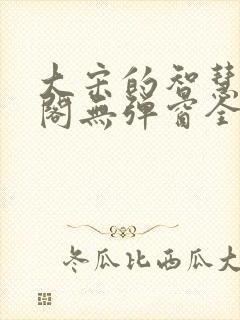 大宋的智慧
閣無彈窗全
冬瓜比西瓜大